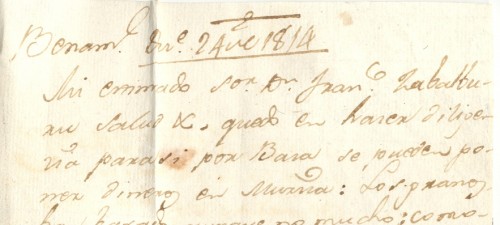 Benam.l En.e 24 de 1814
Mi estimado sor. Dn. Fran.co Zabalbu-
ru salud &. quedo en hacer diligen-
cia para si por Baza se pueden po-
ner dineros en Murcia: Los granos
no mucho; como-